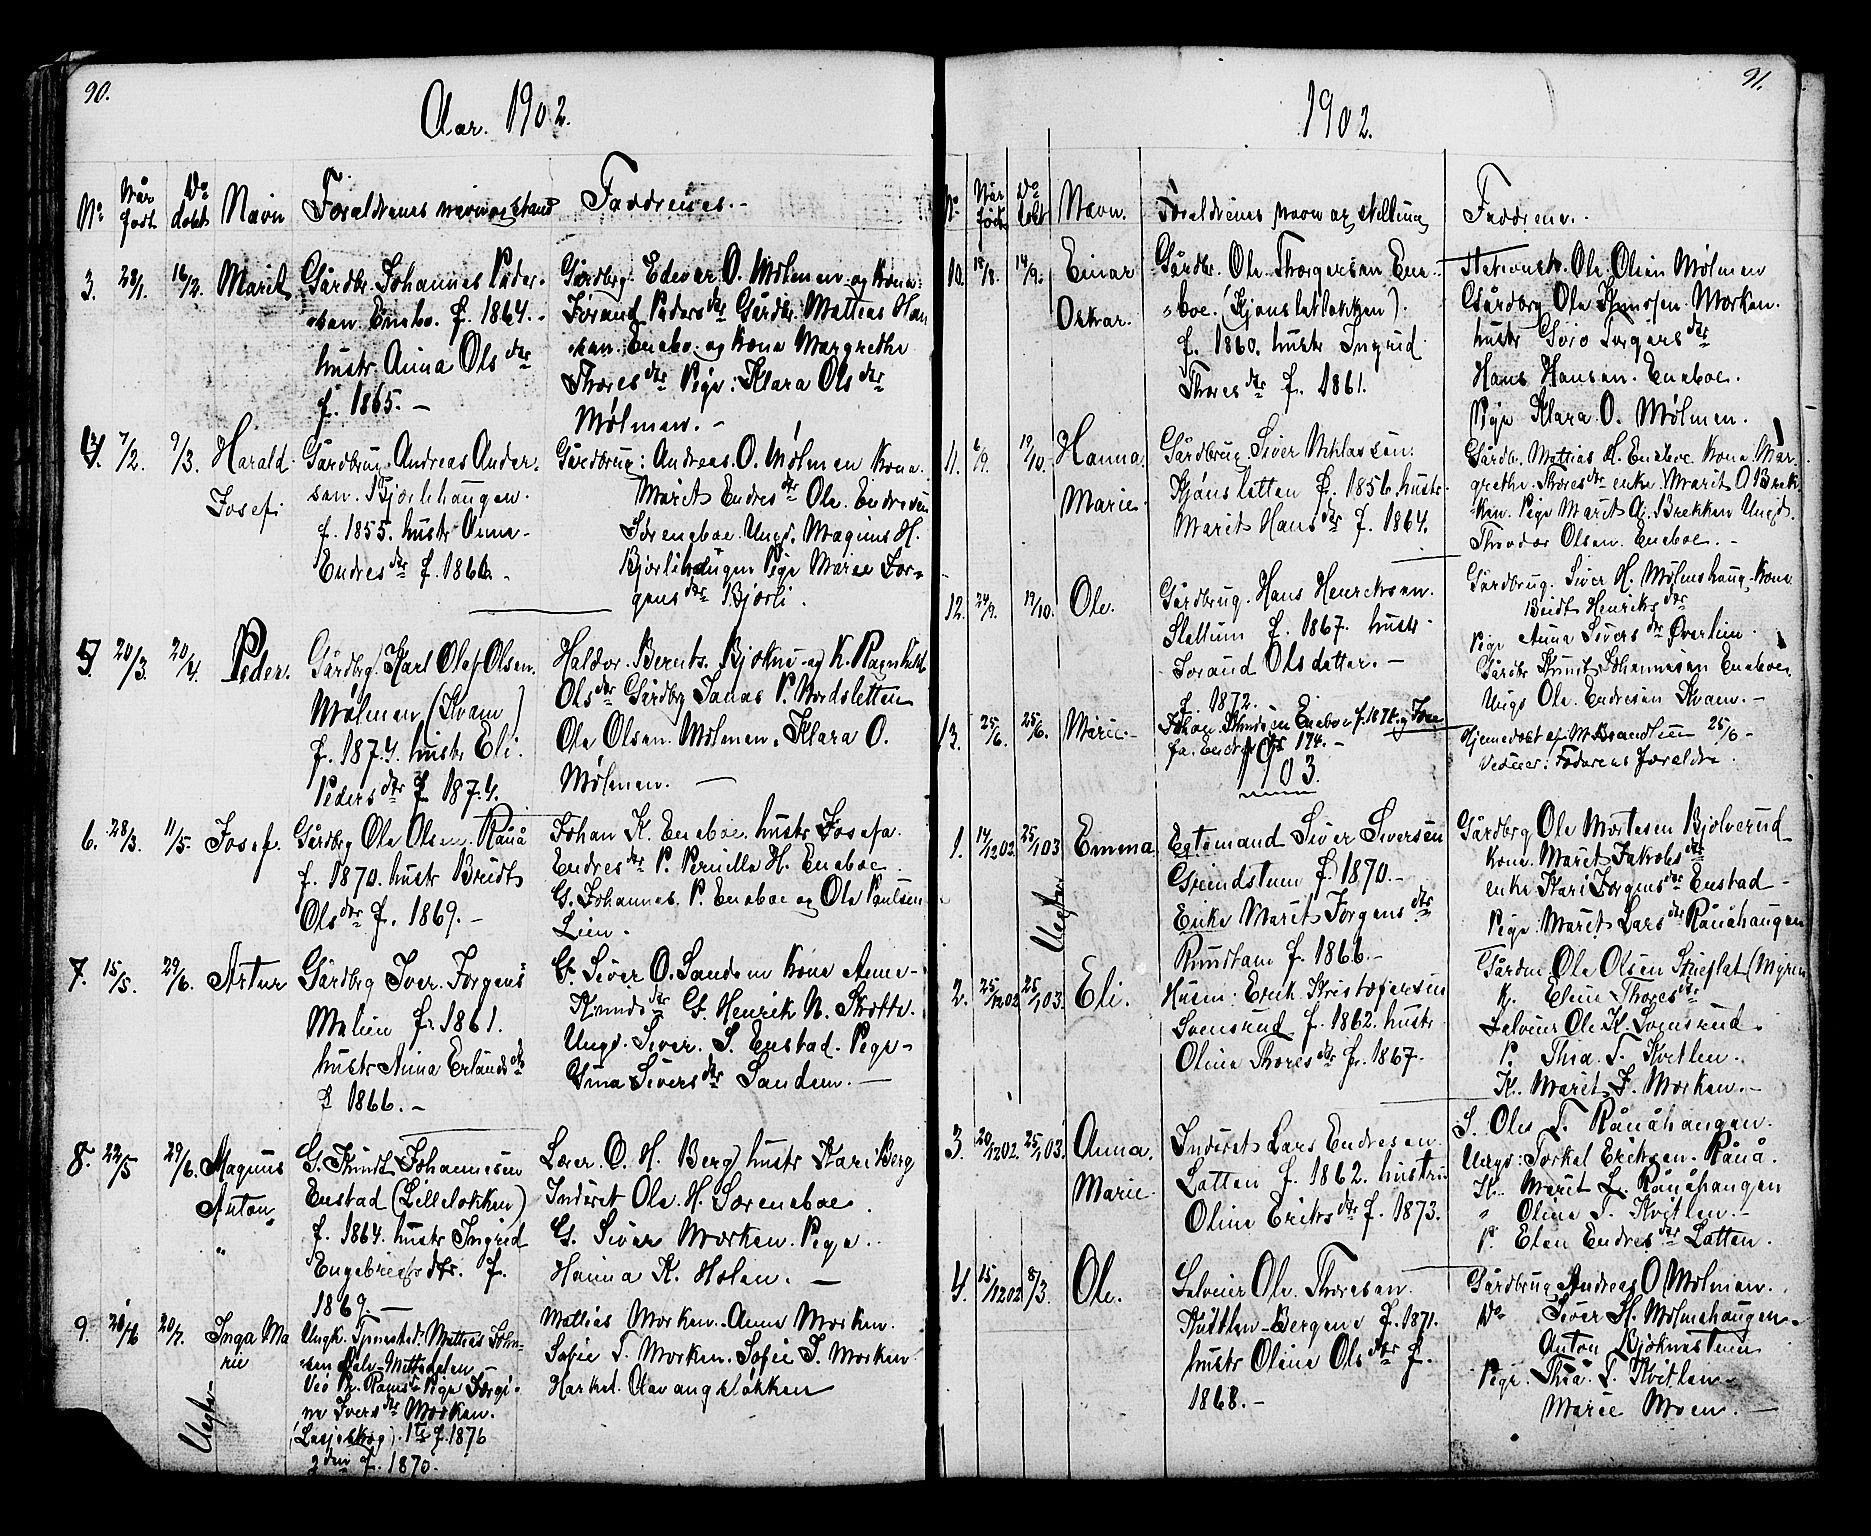 90.
Aar. 1902.
No Når født Do døbt Navn Forældrenes navn og stand Faddernes.-
3. 28/1. 16/2. Marit
Gårdbr. Johannes Peder-
sen Enebo. f. 1864.-
hustr Anna Ols dtr
f. 1865.-
Gårdbrg. Edevar O. Mølmen og kona
Jorand Peders dtr Gårdbr. Mattias Han
sen. Enebo. og kona Margrethe
Thores dtr Pige: Klara Ols dtr
Mølmen.-
4. 7/2. 9/3. Harald
Josef.
Gårdbrug. Andreas Ander-
sen. Bjorlihaugen.
f. 1855. hustr Anne
Endres dtr f. 1866.-
Gårdbrug: Andreas. O. Mølmen Kona.
Marit Endres dtr Ole. Endresen
Søreneboe. Ungd. Magnus H.
Bjorlihaugen Pige Marie Jør-
gens dtr Bjorli.
5. 20/3. 20/4. Peder.
Gårdbrg. Karl Olaf Olsen.
Mølmen (Kvam)
f. 1874. hustr Eli.
Peders dtr f 1874.
Haldor. Bernts. Bjøkne og K. Ragnhild
Ols dtr Gårdbrg Jonas P. Nordsletten
Ole Olsen. Mølmen. Klara O.
Mølmen. —
6. 28/3. 11/5. Josef.
Gårdbrg Ole Olsen. Rånå
f. 1870. hustr Brudt
Ols dtr f. 1869.-
Johan K. Eneboe. hustr Josefa.
Endres dtr P. Pernille H. Eneboe
G. Johannes. P. Eneboe og Ole Paulsen
Lien.
7. 15/5. 29/6. Artur
Gårdbrg Iver. Jørgens
Melien f. 1861.
hustr Anna Erlands dtr
f 1866.-
G. Siver O. Sandem kona Anne-
Knuds dtr G. Henrik N. Skotte.
Ungd. Siver. S. Enstad. Pige-
Gina Sivers dtr Sandem.—
8. 22/5 29/6. Magnus
Anton
G. Knut Johannesen
Enstad (Lilleløkken)
f. 1864. hustr Ingrid
Engebregts dtr. f.
1869.—
Lærer. O. H. Berg hustr Kari Berg
Inderst Ole. H. Søreneboe.
G. Siver Morken. Pige.
Hanna K. Holen. —
9. 20/6 20/7. Inga Ma
rie
Uegte
Ungk. Tjenested. Mattias John-
sen Dalv-Mittedalen
Veø Pr. Roms. Pige Jørgi-
ne Ivers dtr Morken.
(Lesjeskog). 1te f. 1876
2den f. 1870.
Mattias Morken. Anne Morken.
Sofie T. Morken. Sofie J. Morken.
Aavangsløkken
91.
1902.
No Når født Do døbt Navn. Forældrenes navn og stilling Faddrene.-
10. 18/8. 14/9. Einar
Oskar.
Gårdbr. Ole Thorgersen Ene-
boe. (Kjønsletløkken).
f. 1860. hustr Ingrid
Thores dtr f. 1861.
Stationsk. Ole Olsen Mølmen
Gårdbrg Ole Knutsen. Morken.
hustr Goro Torgers dtr
Hans Hansen. Eneboe.
Pige Klara O. Mølmen.
11. 6/9. 19/10. Hanna
Marie.
Gårdbrug Siver Niklassen.
Kjønsletten f. 1856 hustr
Marit Hans dtr f. 1864.
Gårdbr. Mattias H. Eneboe kona Mar
grethe. Thores dtr enke. Marit O Brek
ken. Pige Marit A. Brekken Ungd.
Theodor Olsen. Eneboe.-
12. 24/9. 19/10. Ole.
Gårdbrug. Hans Henriksen.
Slettum f. 1867. hustr
Jorand Olsdatter.-
f. 1872.
Gårdbrug. Siver H. Mølmshaug kona
Brudt Henriks dtr
Pige Anna Sivers dtr Øverlien.
Gårdbr Knut Johannesen Eneboe.
Ungd Ole Endresen Kvam.-
13. 25/6. 25/6. Marie.-
Johan Knudsen Eneboe f. 1871. og Jose
fa. Endres dtr 174.-
Hjemmedøbt af M. Brandlien 25/6-
Vidner: Faderens forældre.
1903.
1. 14/1202. 25/103. Emma
Uegte
Egtemand Siver Siversen
Grindstuen f. 1870.-
Enke Marit Jørgens dtr
Rundtom f. 1866.-
Gårdbrg Ole Mortesen Bjølverud
kona. Marit Jakobs dtr
enke Kari Jørgens dtr Enstad-
Pige. Marit Lars dtr Rånåhaugen
2. 25/1202 25/103. Eli.
Husm: Erik Kristofersen
Svensrud f. 1862. hustr
Oline Thores dtr f. 1867.
Gårdm Ole Olsen Stueflat (Myren
K. Eline Thores dtr
Selveier Ole K. Svensrud.
P. Thea. T. Kvitlen.
K. Marit. J. Morken.-
3. 20/1202. 25/103. Anna.
Marie.
Inderst Lars Endresen.
Latten f. 1862. hustru
Oline Eriks dtr f. 1873.
S. Ole T. Rånåhaugen.
Ungd: Torkel Eriksen. Rånå.
K. Marit L. Rånåhaugen
" Oline T. Kvitlen.-
P. Elen Endres dtr Latten.
4. 15/1202 8/3. Ole.
Selveier Ole. Thoresen.
Kvitlen-Bergene f. 1871.
hustr Oline Ols dtr f.
1868.-
Gårdbrug Andreas O Mølmen.
Do Siver H. Mølmshaugen.
Anton Bjøknestuen
Pige. Thea. T. Kvitlen.
Marie Moen.—